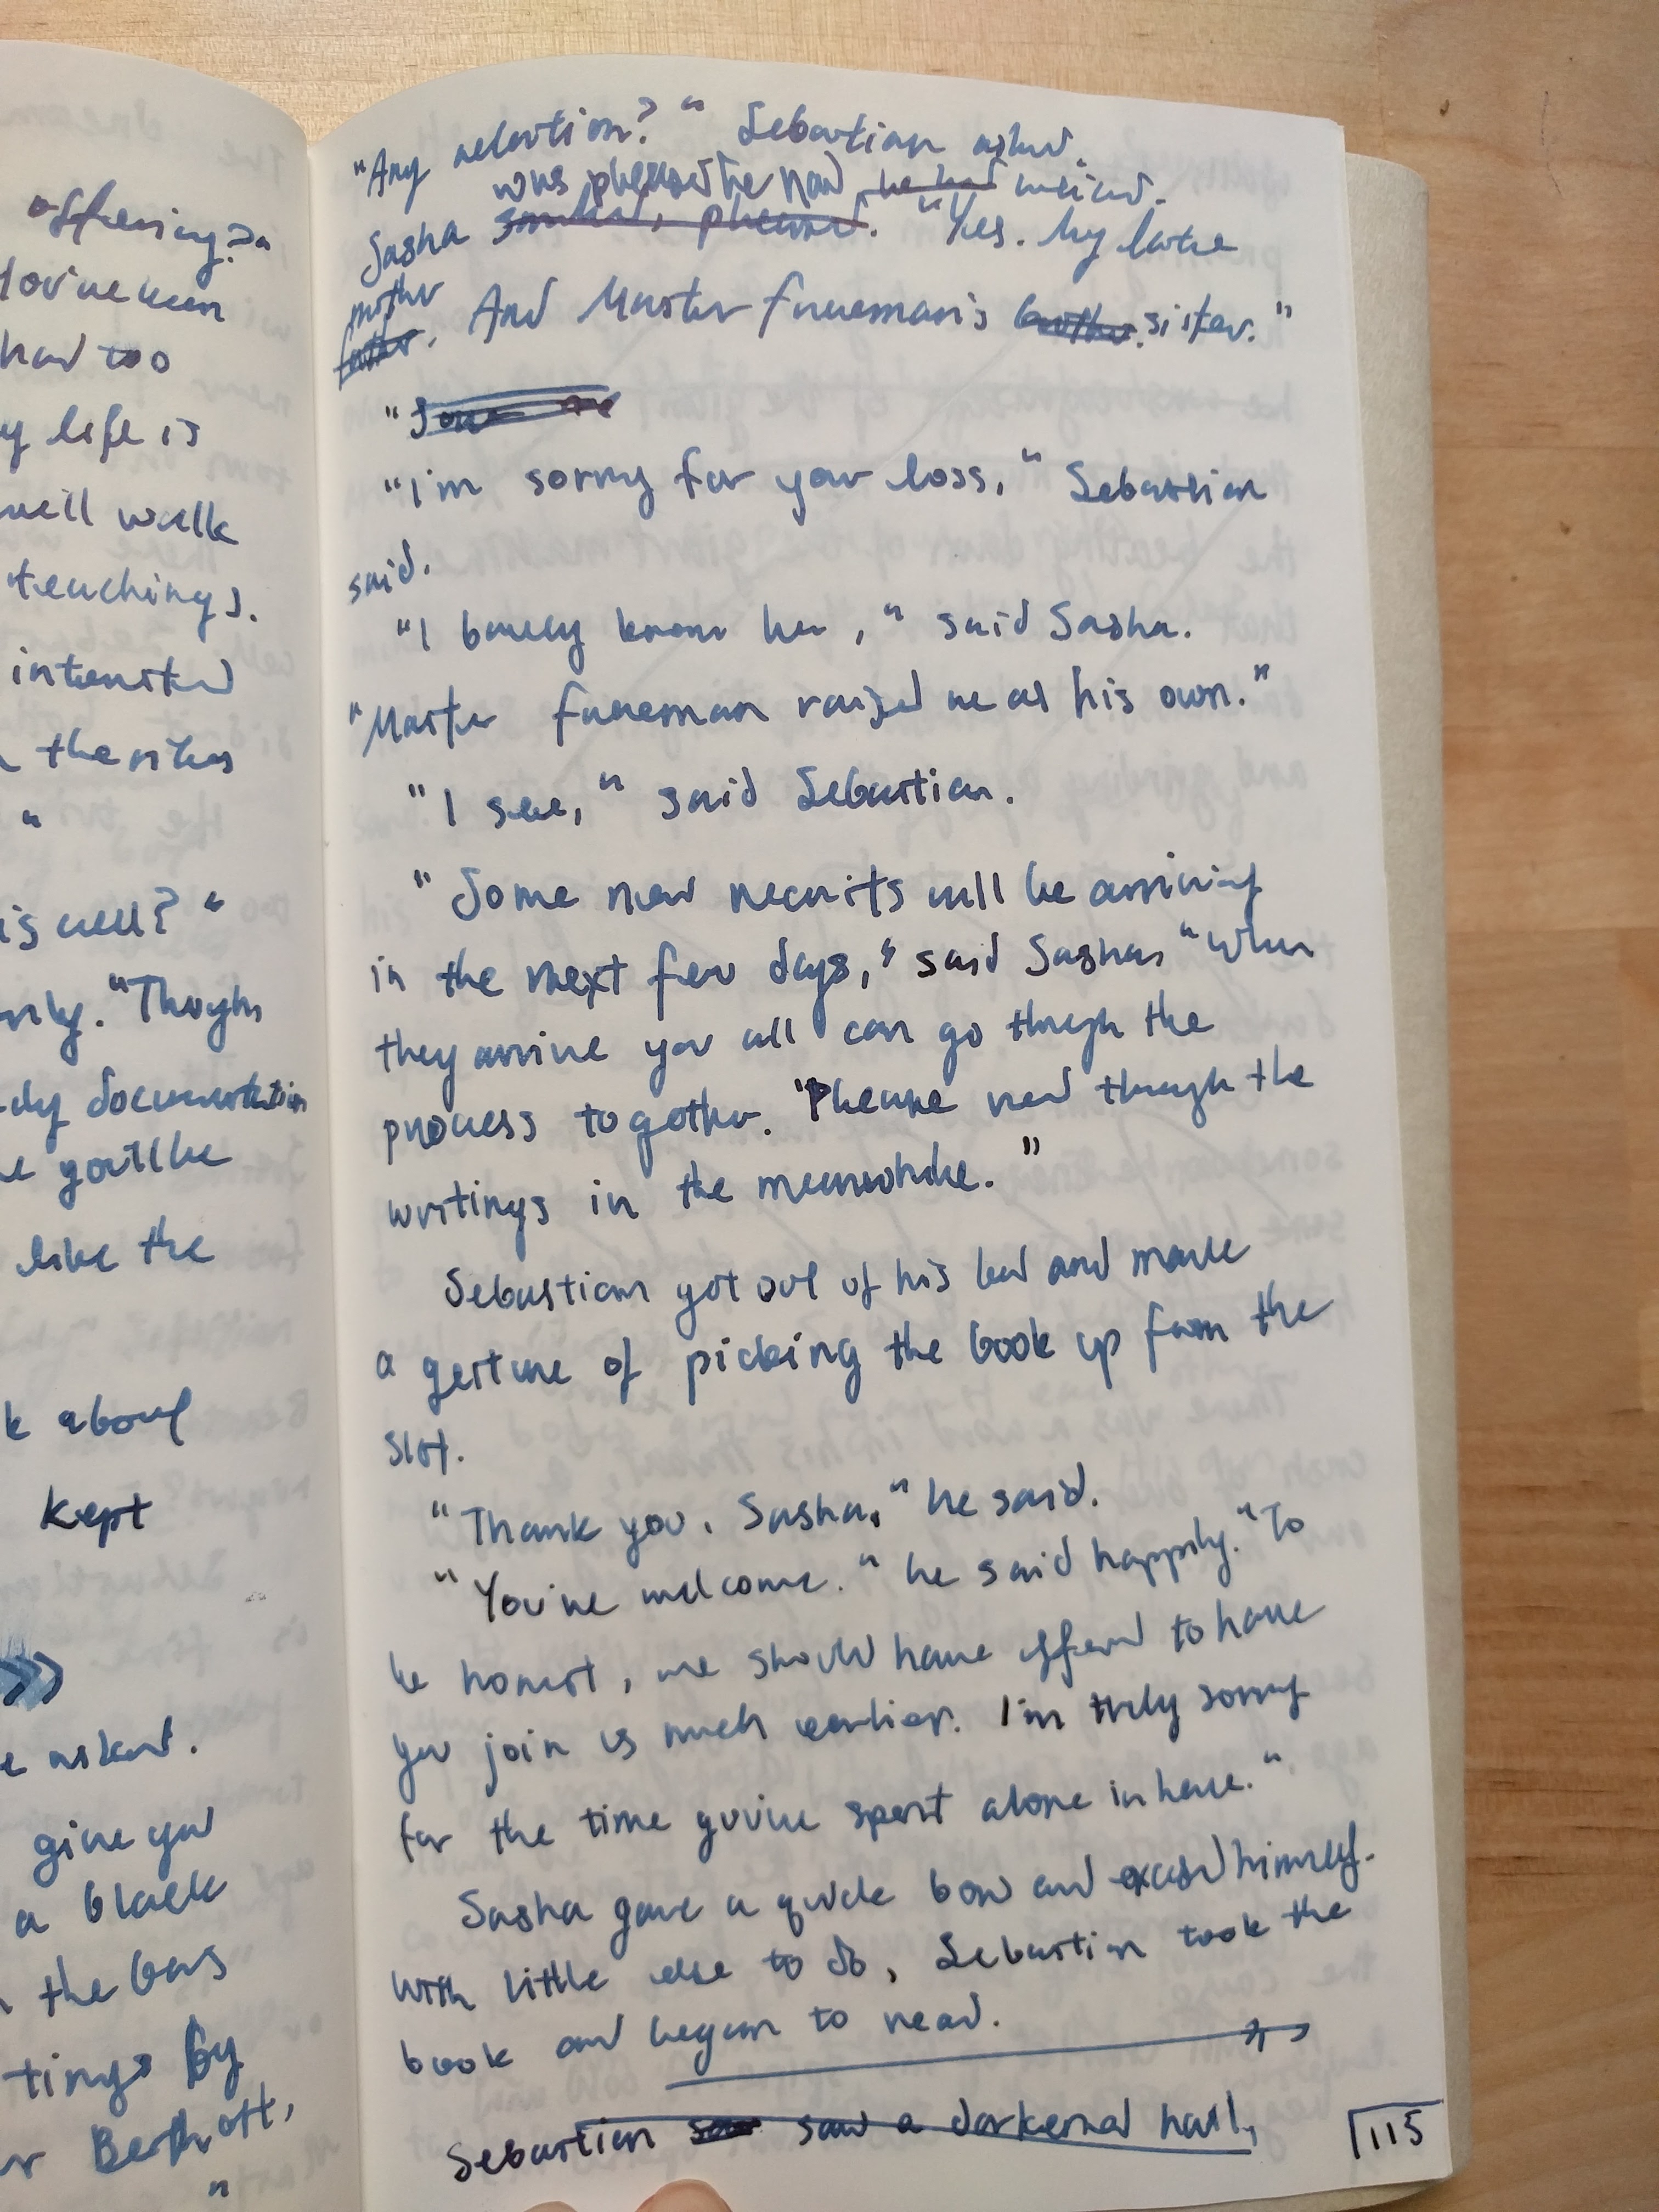 offering?"
You've been
had too
y life is
we'll walk
teachings.
interested
the rites
"
is well? "
"Though
documentation
you'll be
like the
k about
kept
»
e asked.
give you
a black
the bars
tings by
r Berthott,
"
"Any relation?" Sebastian asked.
was pleased he had he had asked.
Sasha smiled, pleased. "Yes. My late
mother
father. And Master Funeman's brother. sister."
"Some
"I'm sorry for your loss," Sebastian
said.
"I barely knew her," said Sasha.
"Master Funeman raised me as his own."
"I see," said Sebastian.
"Some new recruits will be arriving
in the next few days," said Sasha. "When
they arrive you all can go through the
process together. "Please read through the
writings in the meanwhile."
Sebastian got out of his bed and made
a gesture of picking the book up from the
slot.
"Thank you, Sasha," he said.
"You're welcome." he said happily. "To
be honest, we should have offered to have
you join us much earlier. I'm truly sorry
for the time you've spent alone in here."
Sasha gave a quick bow and excused himself.
With little else to do, Sebastian took the
book and began to read.
Sebastian saw saw a darkened hall,
115